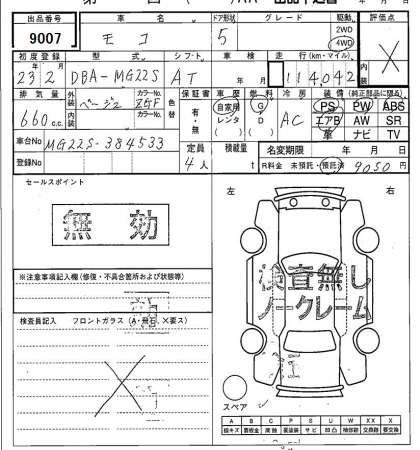 出品番号 車名 ドア形状 グレード 駆動 評価点
9007 モコ 5 2WD 4WD
初度登録 型式 シフト 車検 走行(km・マイル) 内装
23年2月 DBA-MG22S AT 年 月 114,042
排気量 外装 カラーNo. 色替 保証書 車歴 燃料 冷房 装備 (純正部品に限る)
660c.c. ベージュ ZGF 有・無 自家用 G AC PS PW ABS
内装 カラーNo. レンタ D エアB AW SR
( ) ( ) 革 ナビ TV
車台No MG22S-384533 定員 積載量 名変期限 年 月 日
登録No 4人 t R料金 未預託・預託済 9050円
セールスポイント 左 右
無効
※注意事項記入欄(修復・不具合箇所および状態等)
検査無し
ノークレーム
検査員記入 フロントガラス(A・飛石、×要ス)
スペア
A B C P S U W X XX
線キズ 要板金 腐蝕 要塗装 サビ 凹凸 補修跡 交換跡 要交換